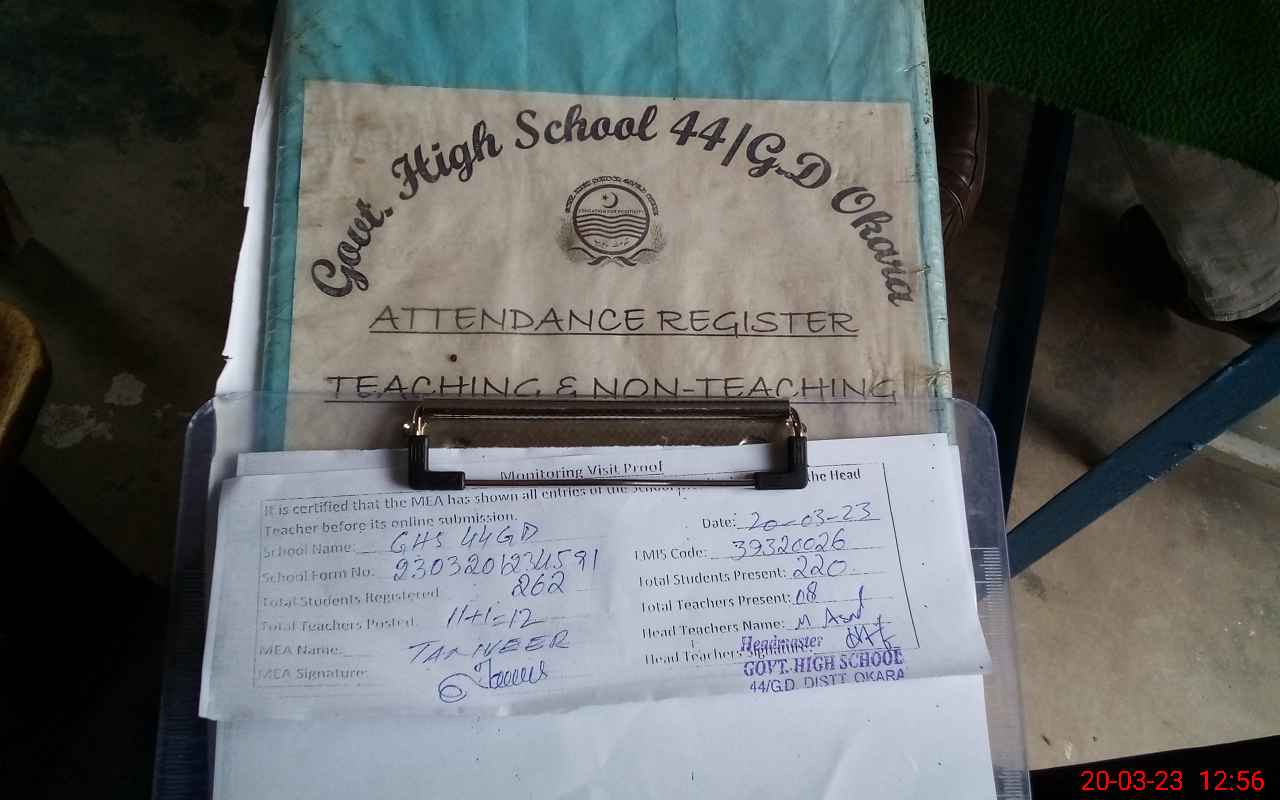 Govt. High School 44/G.D Okara
ATTENDANCE REGISTER
TEACHING & NON-TEACHING
Monitoring Visit Proof
It is certified that the MEA has shown all entries of the School the Head
Teacher before its online submission.
Date: 20-03-23
School Name: GHS 44GD
EMIS Code: 39320026
School Form No.
Total Students Present: 220
Total Students Registered 262
Total Teachers Present: 08
Total Teachers Posted: 11+1=12
Head Teachers Name: M
MEA Name: TANVEER
Head Teachers Signature:
MEA Signature:
Headmaster
GOVT. HIGH SCHOOL
44/G.D. DISTT. OKARA
20-03-23 12:56